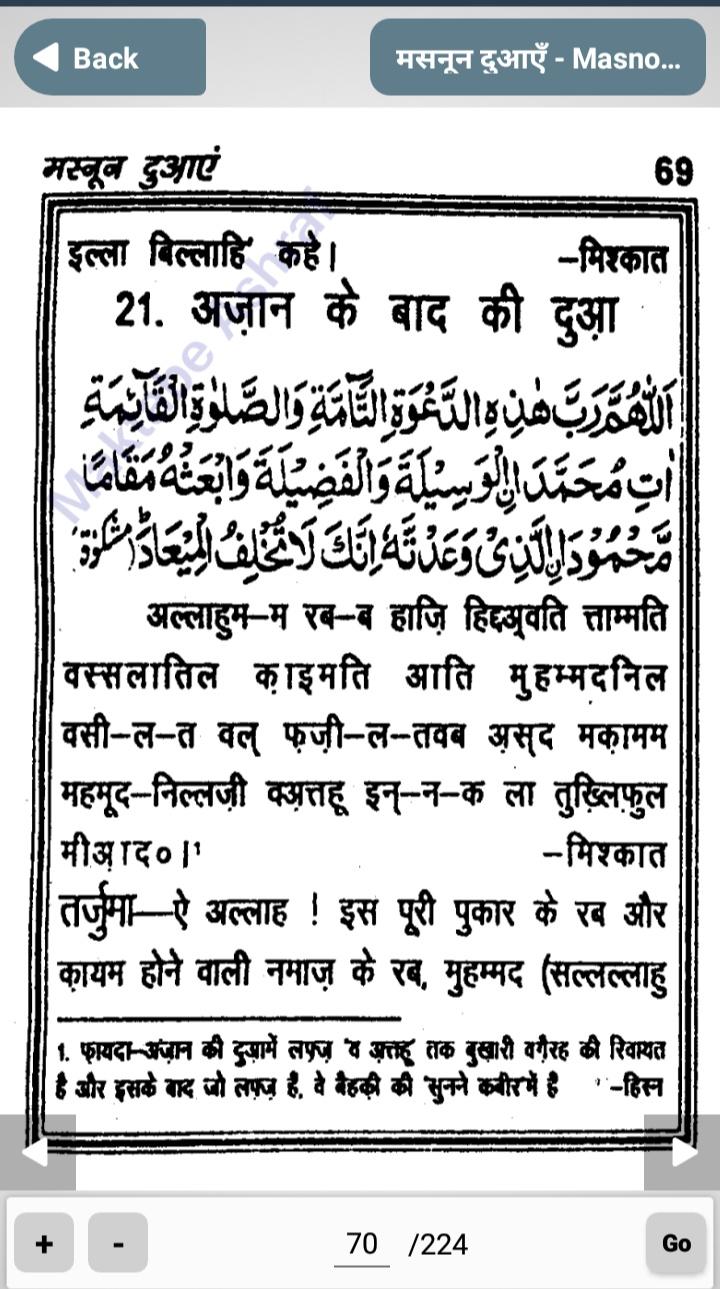 Back
मसनून दुआएँ - Masno...
मस्नून दुआएं
69
इल्ला बिल्लाहि' कहे। –मिश्कात
21. अज़ान के बाद की दुआ़
اَللّٰهُمَّ رَبَّ هٰذِهِ الدَّعْوَةِ التَّآمَّةِ وَالصَّلٰوةِ الْقَآئِمَةِ
اٰتِ مُحَمَّدَ اِنِ الْوَسِيْلَةَ وَالْفَضِيْلَةَ وَابْعَثْهُ مَقَامًا
مَّحْمُوْدَ اِنِ الَّذِىْ وَعَدْتَّهٗ اِنَّكَ لَا تُخْلِفُ الْمِيْعَادَ ؕ (مشکوٰۃ)
अल्लाहुम–म रब–ब हाज़ि हिद्दअ़्वति त्ताम्मति
वस्सलातिल क़ाइमति आति मुहम्मदनिल
वसी–ल–त वल् फ़ज़ी–ल–तवब अ़स्द मक़ामम
महमूद–निल्लज़ी वअ़त्तहू इन्–न–क ला तुख़्लिफ़ुल
मीआ़द०।¹ –मिश्कात
तर्जुमा—ऐ अल्लाह ! इस पूरी पुकार के रब और
क़ायम होने वाली नमाज़ के रब, मुहम्मद (सल्लल्लाहु
1. फ़ायदा–अज़ान की दुआ़में लफ़्ज़ 'व अ़त्तहू' तक बुख़ारी वग़ैरह की रिवायत
है और इसके बाद जो लफ़्ज़ हैं, वे बैहक़ी की 'सुनने कबीर'में है –हिस्न
Maktabe Ashraf
+ - 70 /224 Go